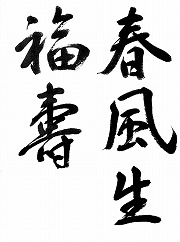 春風生
福壽